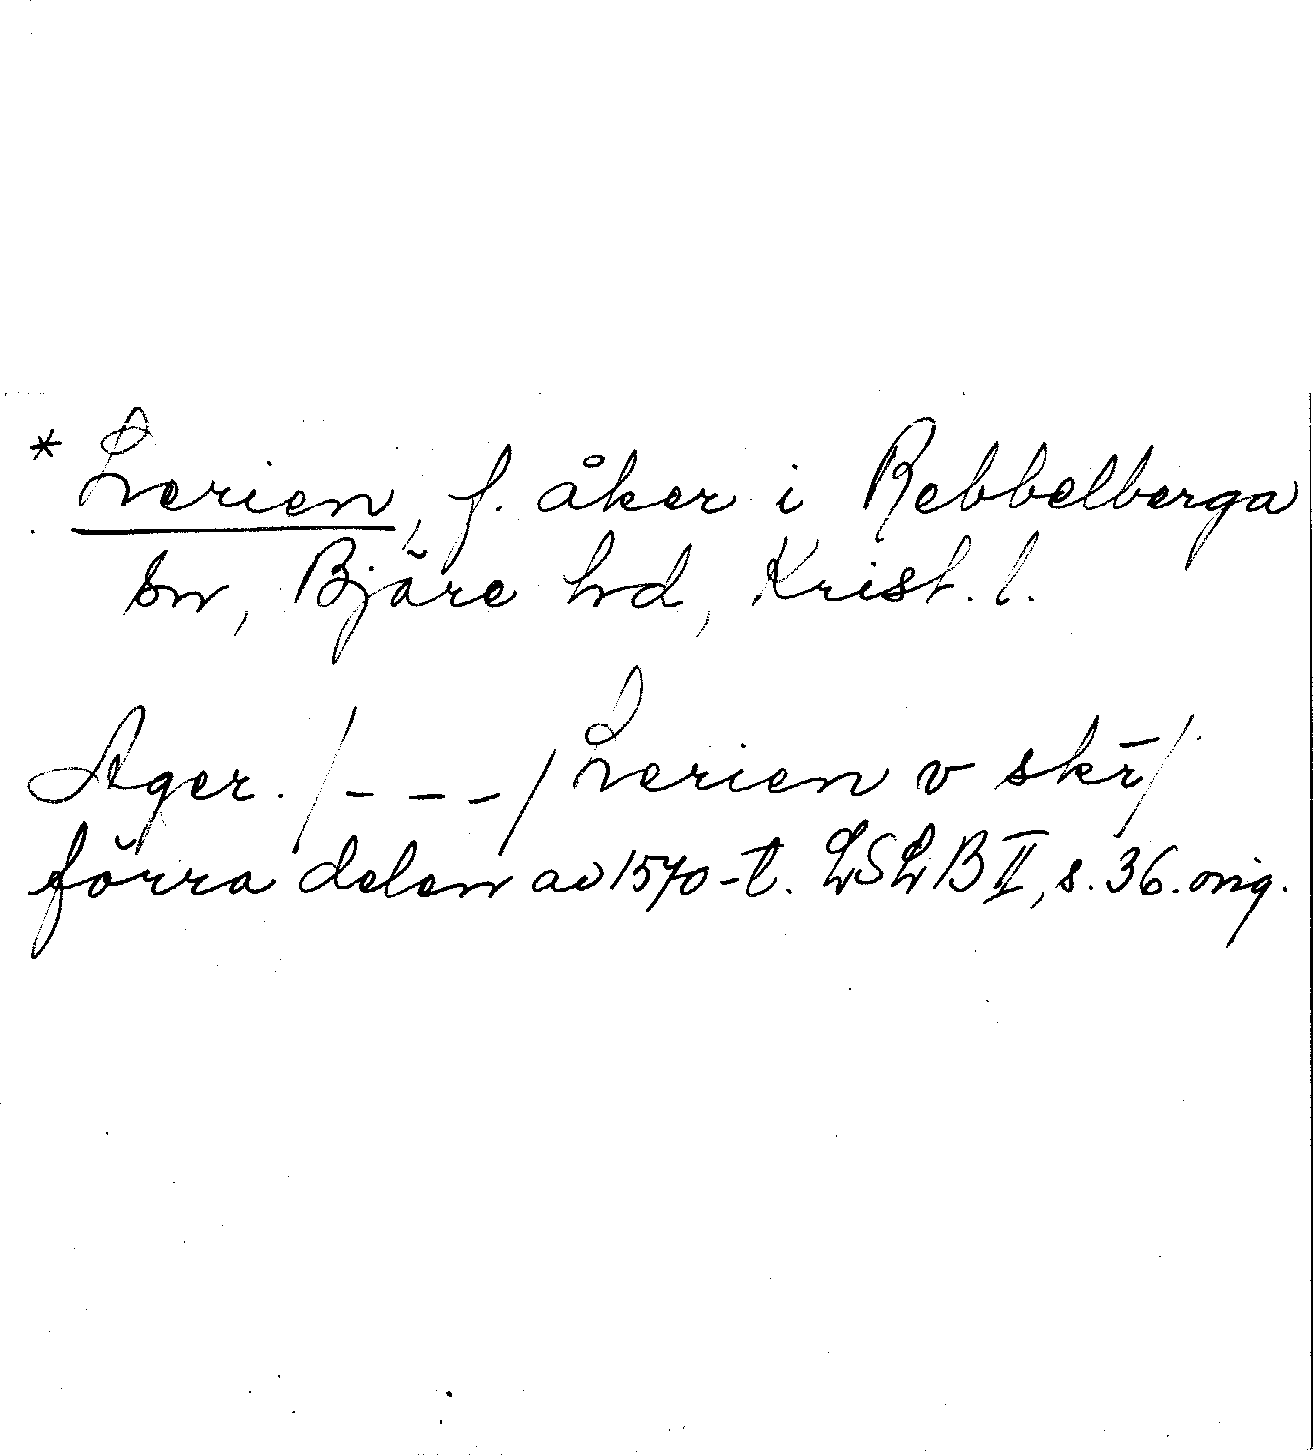 * Lerien, f. åker i Rebbelberga
sn, Bjäre hd, Krist. l.
Ager. /- - -/ Lerien v skr̄/
förra delen av 1570-t. LSLB II, s. 36. orig.